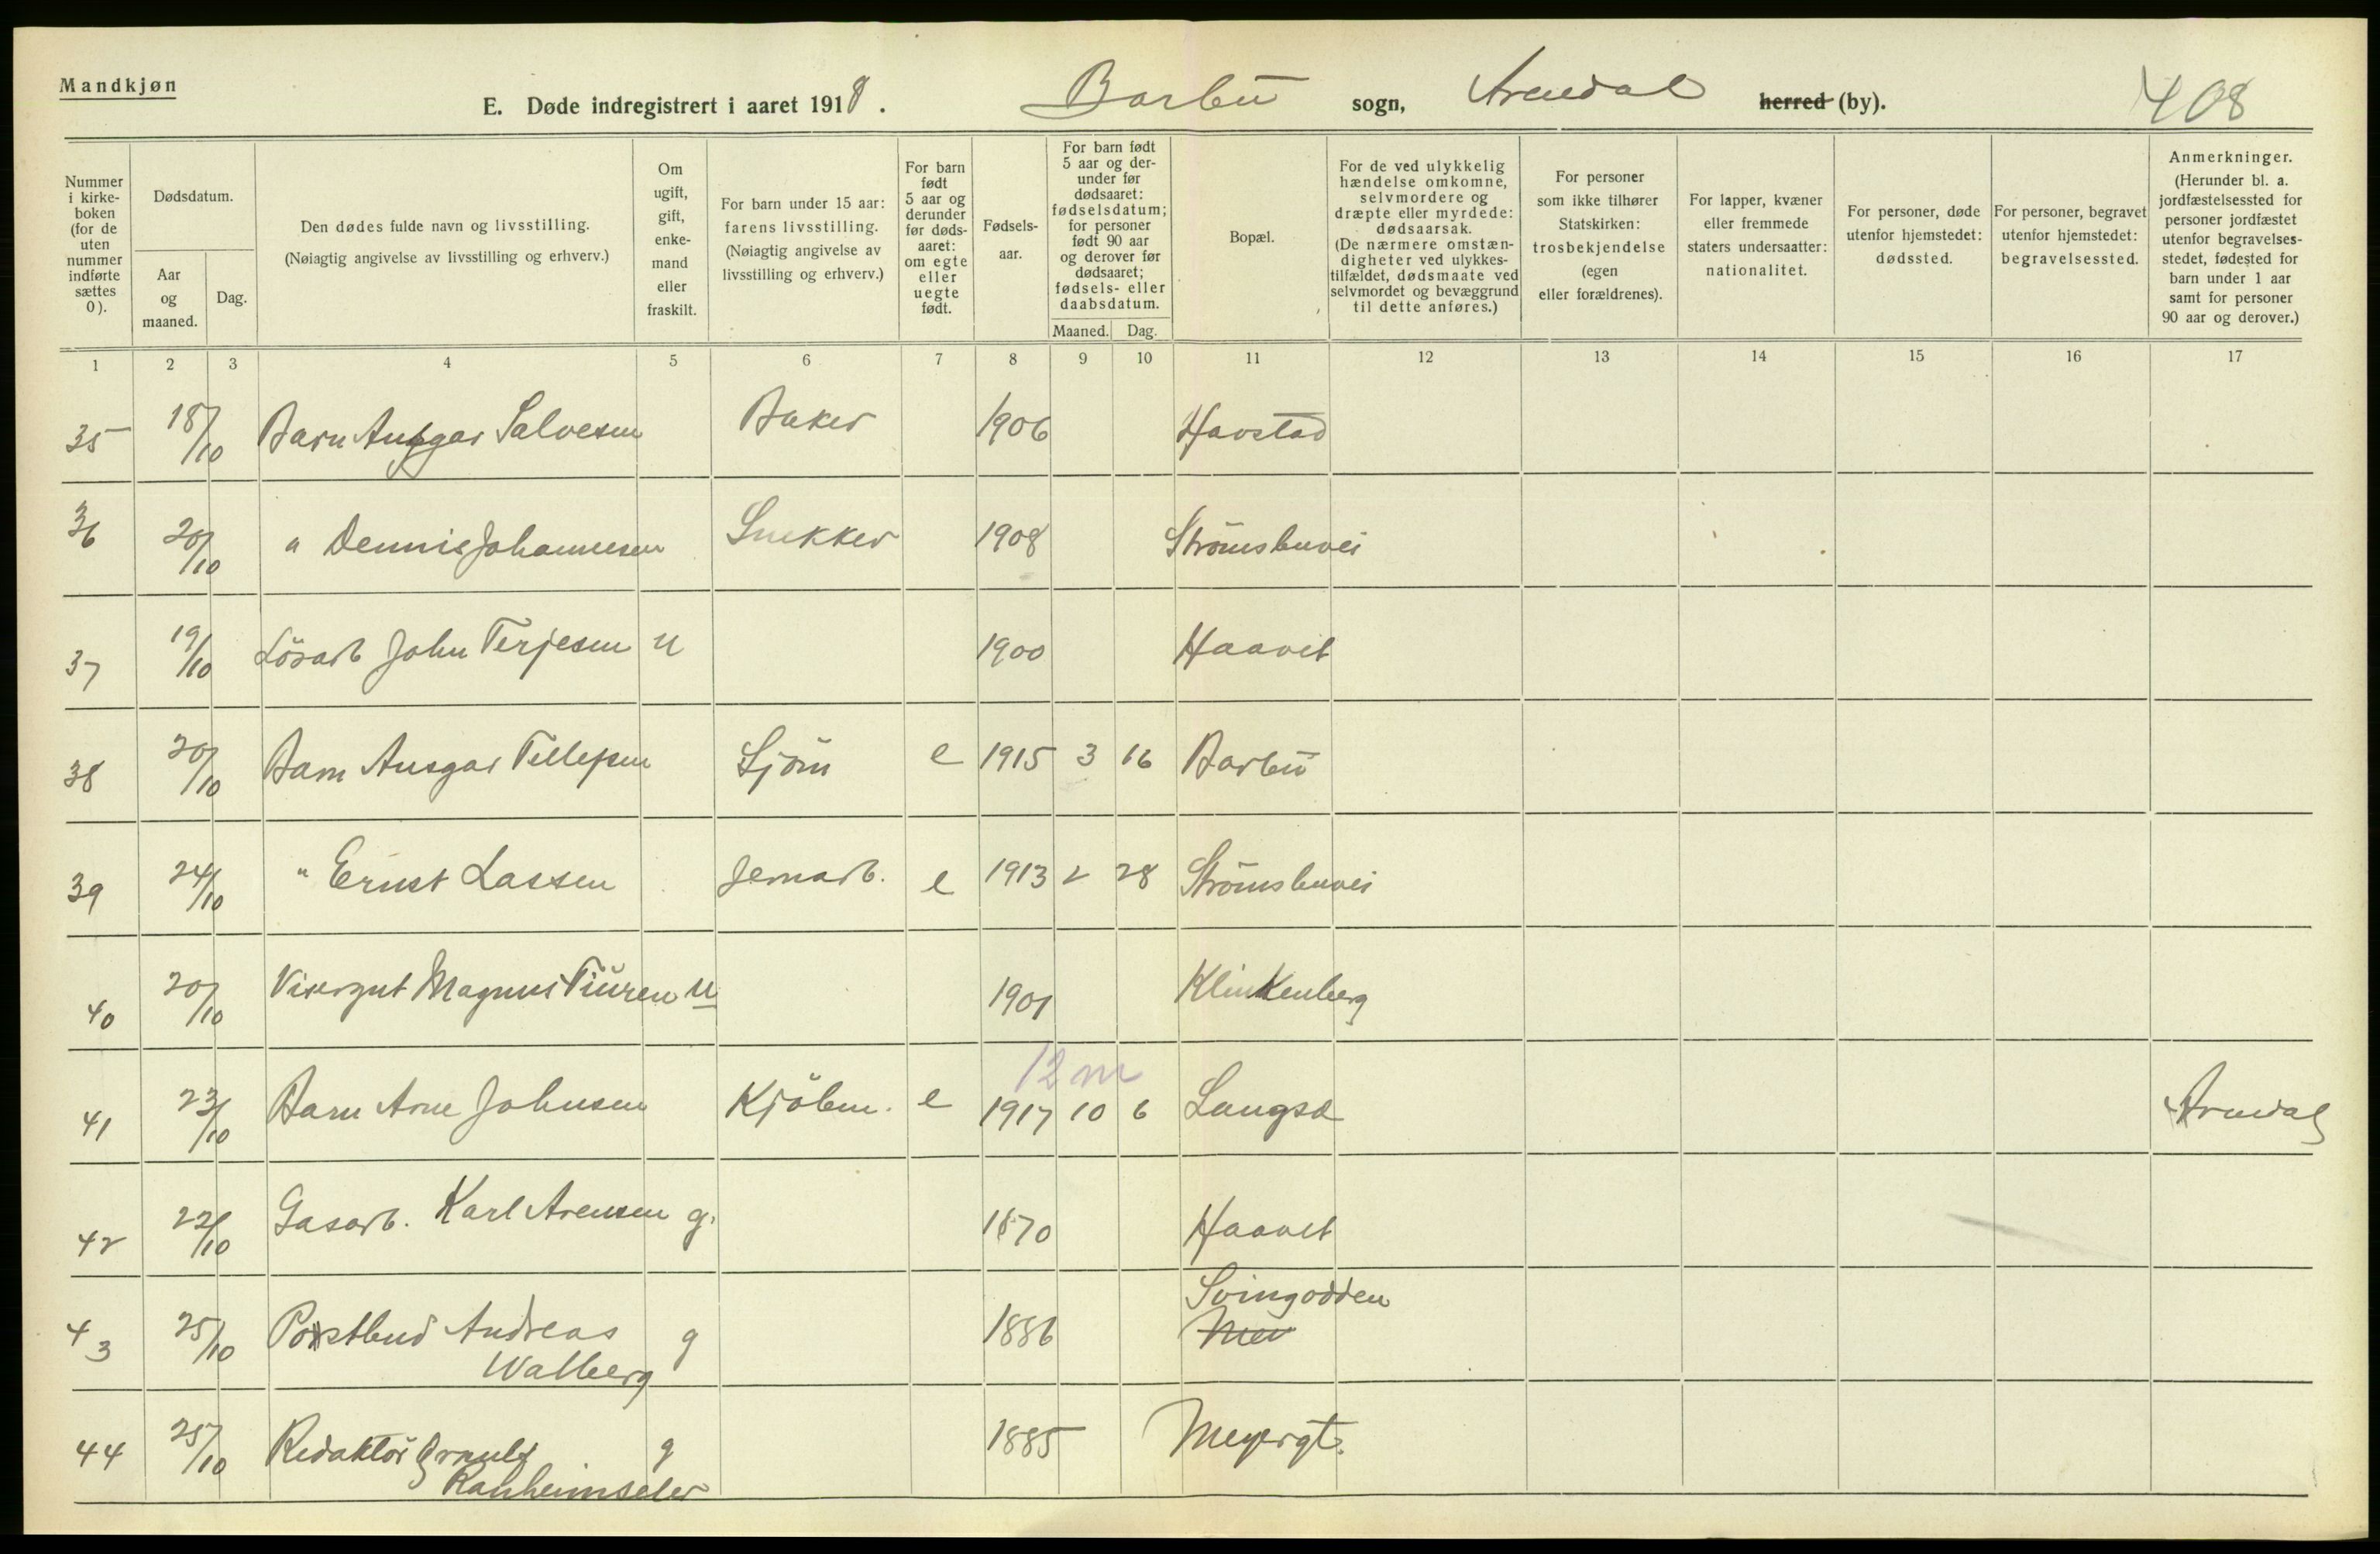 Mandkjøn
E. Døde indregistrert i aaret 1918. Barbu sogn, Arendal herred (by). 408
Nummer i kirke-boken (for de uten nummer indførte sættes 0).
Dødsdatum.
Aar og maaned.
Dag.
Den dødes fulde navn og livsstilling.
(Nøiagtig angivelse av livsstilling og erhverv.)
Om ugift, gift, enke-mand eller fraskilt.
For barn under 15 aar: farens livsstilling.
(Nøiagtig angivelse av livsstilling og erhverv.)
For barn født 5 aar og derunder før døds-aaret: om egte eller uegte født.
Fødsels-aar.
For barn født 5 aar og der-under før dødsaaret: fødselsdatum; for personer født 90 aar og derover før dødsaaret; fødsels- eller daabsdatum.
Maaned. Dag.
Bopæl.
For de ved ulykkelig hændelse omkomne, selvmordere og dræpte eller myrdede: dødsaarsak.
(De nærmere omstæn-digheter ved ulykkes-tilfældet, dødsmaate ved selvmordet og bevæggrund til dette anføres.)
For personer som ikke tilhører Statskirken: trosbekjendelse (egen eller forældrenes).
For lapper, kvæner eller fremmede staters undersaatter: nationalitet.
For personer, døde utenfor hjemstedet: dødssted.
For personer, begravet utenfor hjemstedet: begravelsessted.
Anmerkninger.
(Herunder bl. a. jordfæstelsessted for personer jordfæstet utenfor begravelses-stedet, fødested for barn under 1 aar samt for personer 90 aar og derover.)
1 2 3 4 5 6 7 8 9 10 11 12 13 14 15 16 17
35 18/10 Barn Ansgar Salvesen Baker 1906 Havstad
36 20/10 " Dennis Johannesen Snekker 1908 Strømsbuvei
37 19/10 Lösarb John Terjesen u 1900 Haavet
38 20/10 Barn Ansgar Tellefsen Sjöm e 1915 3 16 Barbu
39 24/10 " Ernst Lassen Jernarb. e 1913 2 28 Strömsbuvei
40 20/10 Visergut Magnus u 1901 Klinkenberg
12 m
41 23/10 Barn Arne Johnsen Kjöbm. e 1917 10 6 Langsæ Arendal
42 22/10 Gasarb. Karl Arensen g. 1870 Haavet
Svingodden
43 25/10 Postbud Andreas g 1886
Walberg
44 25/10 Redaktör g 1885 Meyergt.